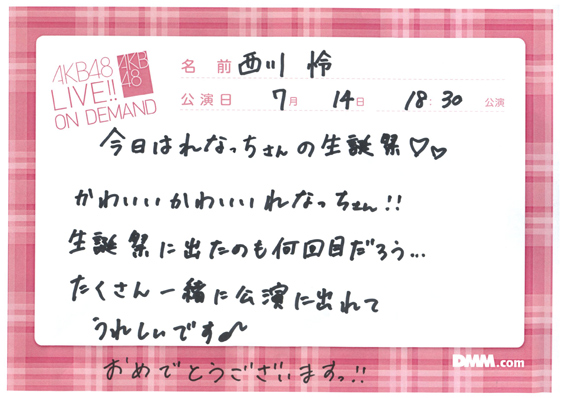 AKB48
LIVE!!
ON DEMAND
AKB
48
名 前 西川 怜
公演日 7月 14日 18:30 公演
今日はれなっちさんの生誕祭♡♡
かわいいかわいいれなっちさん!!
生誕祭に出たのも何回目だろう...
たくさん一緒に公演に出れて
うれしいです♪
おめでとうございますっ!!
DMM.com